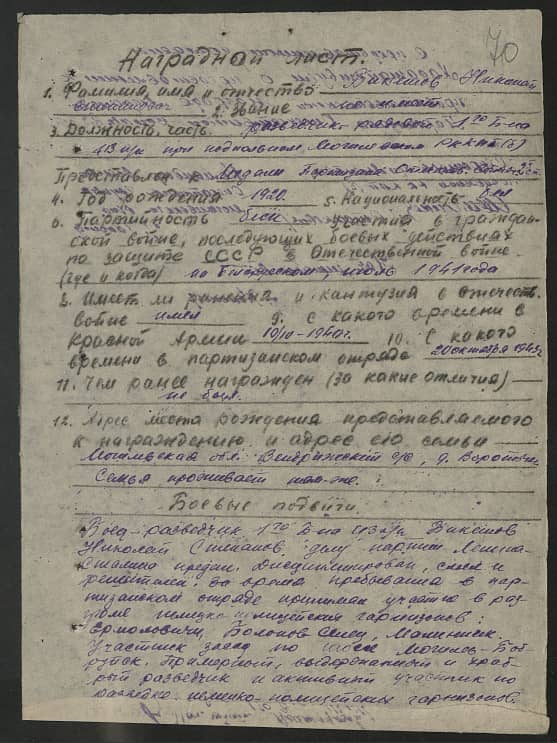 70
Наградной лист.
1. Фамилия, имя и отчество Викешов Николай
2. Звание
3. Должность, часть разведчик рядовой 1го Б-на
413 п/к при подпольном Могилевском РККП(б)
Представлен к Медали Партизана Отечеств. войны 2 ст
4. Год рождения 1920. 5. Национальность
6. Партийность б/п участия в граждан-
ской войне, последующих боевых действиях
по защите СССР в Отечественной войне.
(где и когда) на Белорусском, июль 1941 года
8. Имеет ли ранения и кантузия в отечеств.
войне имел 9. с какого времени в
Красной Армии 10/IV-1940г. 10. С какого
времени в партизанском отряде 20 октября 1943г.
11. Чем ранее награжден (за какие отличия)
не был.
12. Адрес места рождения представляемого
к награждению и адрес его семьи
Могилевская обл. с/с, д.
Семья проживает там-же.
Боевые подвиги.
Боец-разведчик 1го Б-на 413 п/к Викешов
Николай делу партии Ленина-
Сталина предан. Дисциплинирован, смел и
решителен. За время пребывания в пар-
тизанском отряде принимал участие в раз-
громе немецко-полицейских гарнизонов:
Ермоловичи, Болонов Селец, Малинник.
Участник засад по шоссе Могилев-Боб-
руйск. Примерный, выдержанный и храб-
рый разведчик и активный участник по
разведке немецко-полицейских гарнизонов.